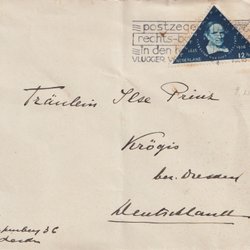 postzege
rechts-b
in den h
VLUGGER V
NEDERLAND
12½
Fräulein Ilse Prinz
Krögis
bei Dresden
Deutschland